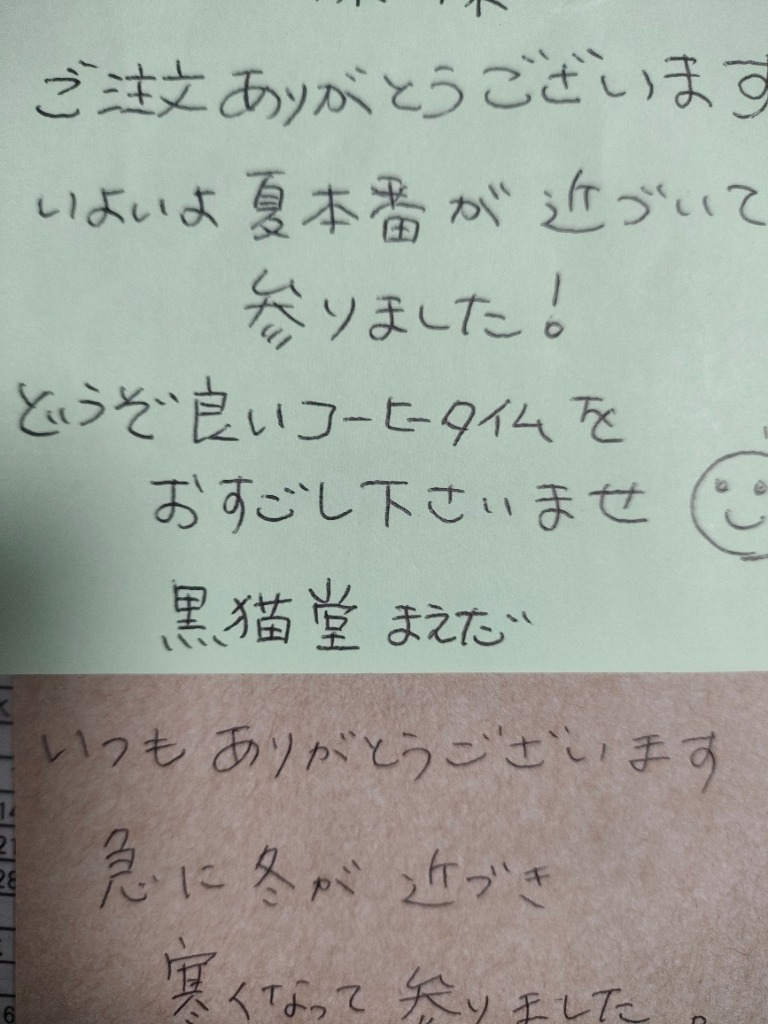 ご注文ありがとうございます
いよいよ夏本番が近づいて
参りました!
どうぞ良いコーヒータイムを
おすごし下さいませ
黒猫堂 まえだ
いつもありがとうございます
急に冬が近づき
寒くなって参りました。
14
21
28
6